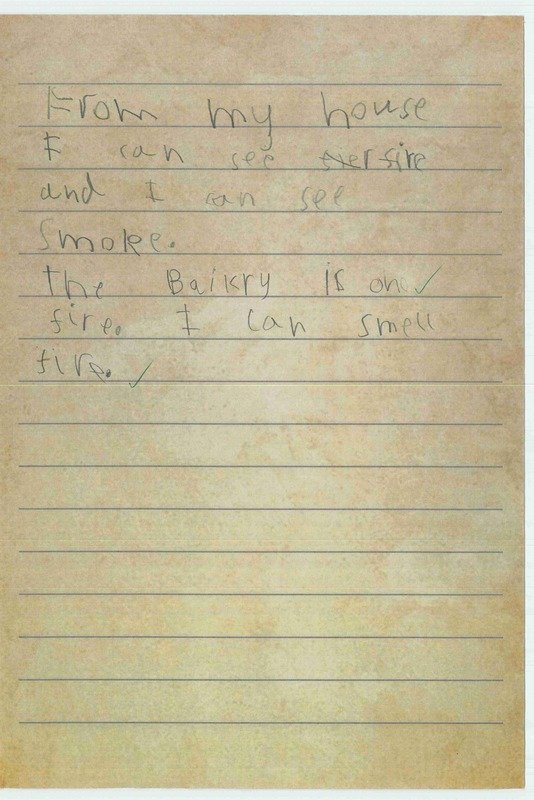 From my house
I can see fire
and I can see
Smoke.
the Baikry is on ✓
fire. I can smell
fire. ✓